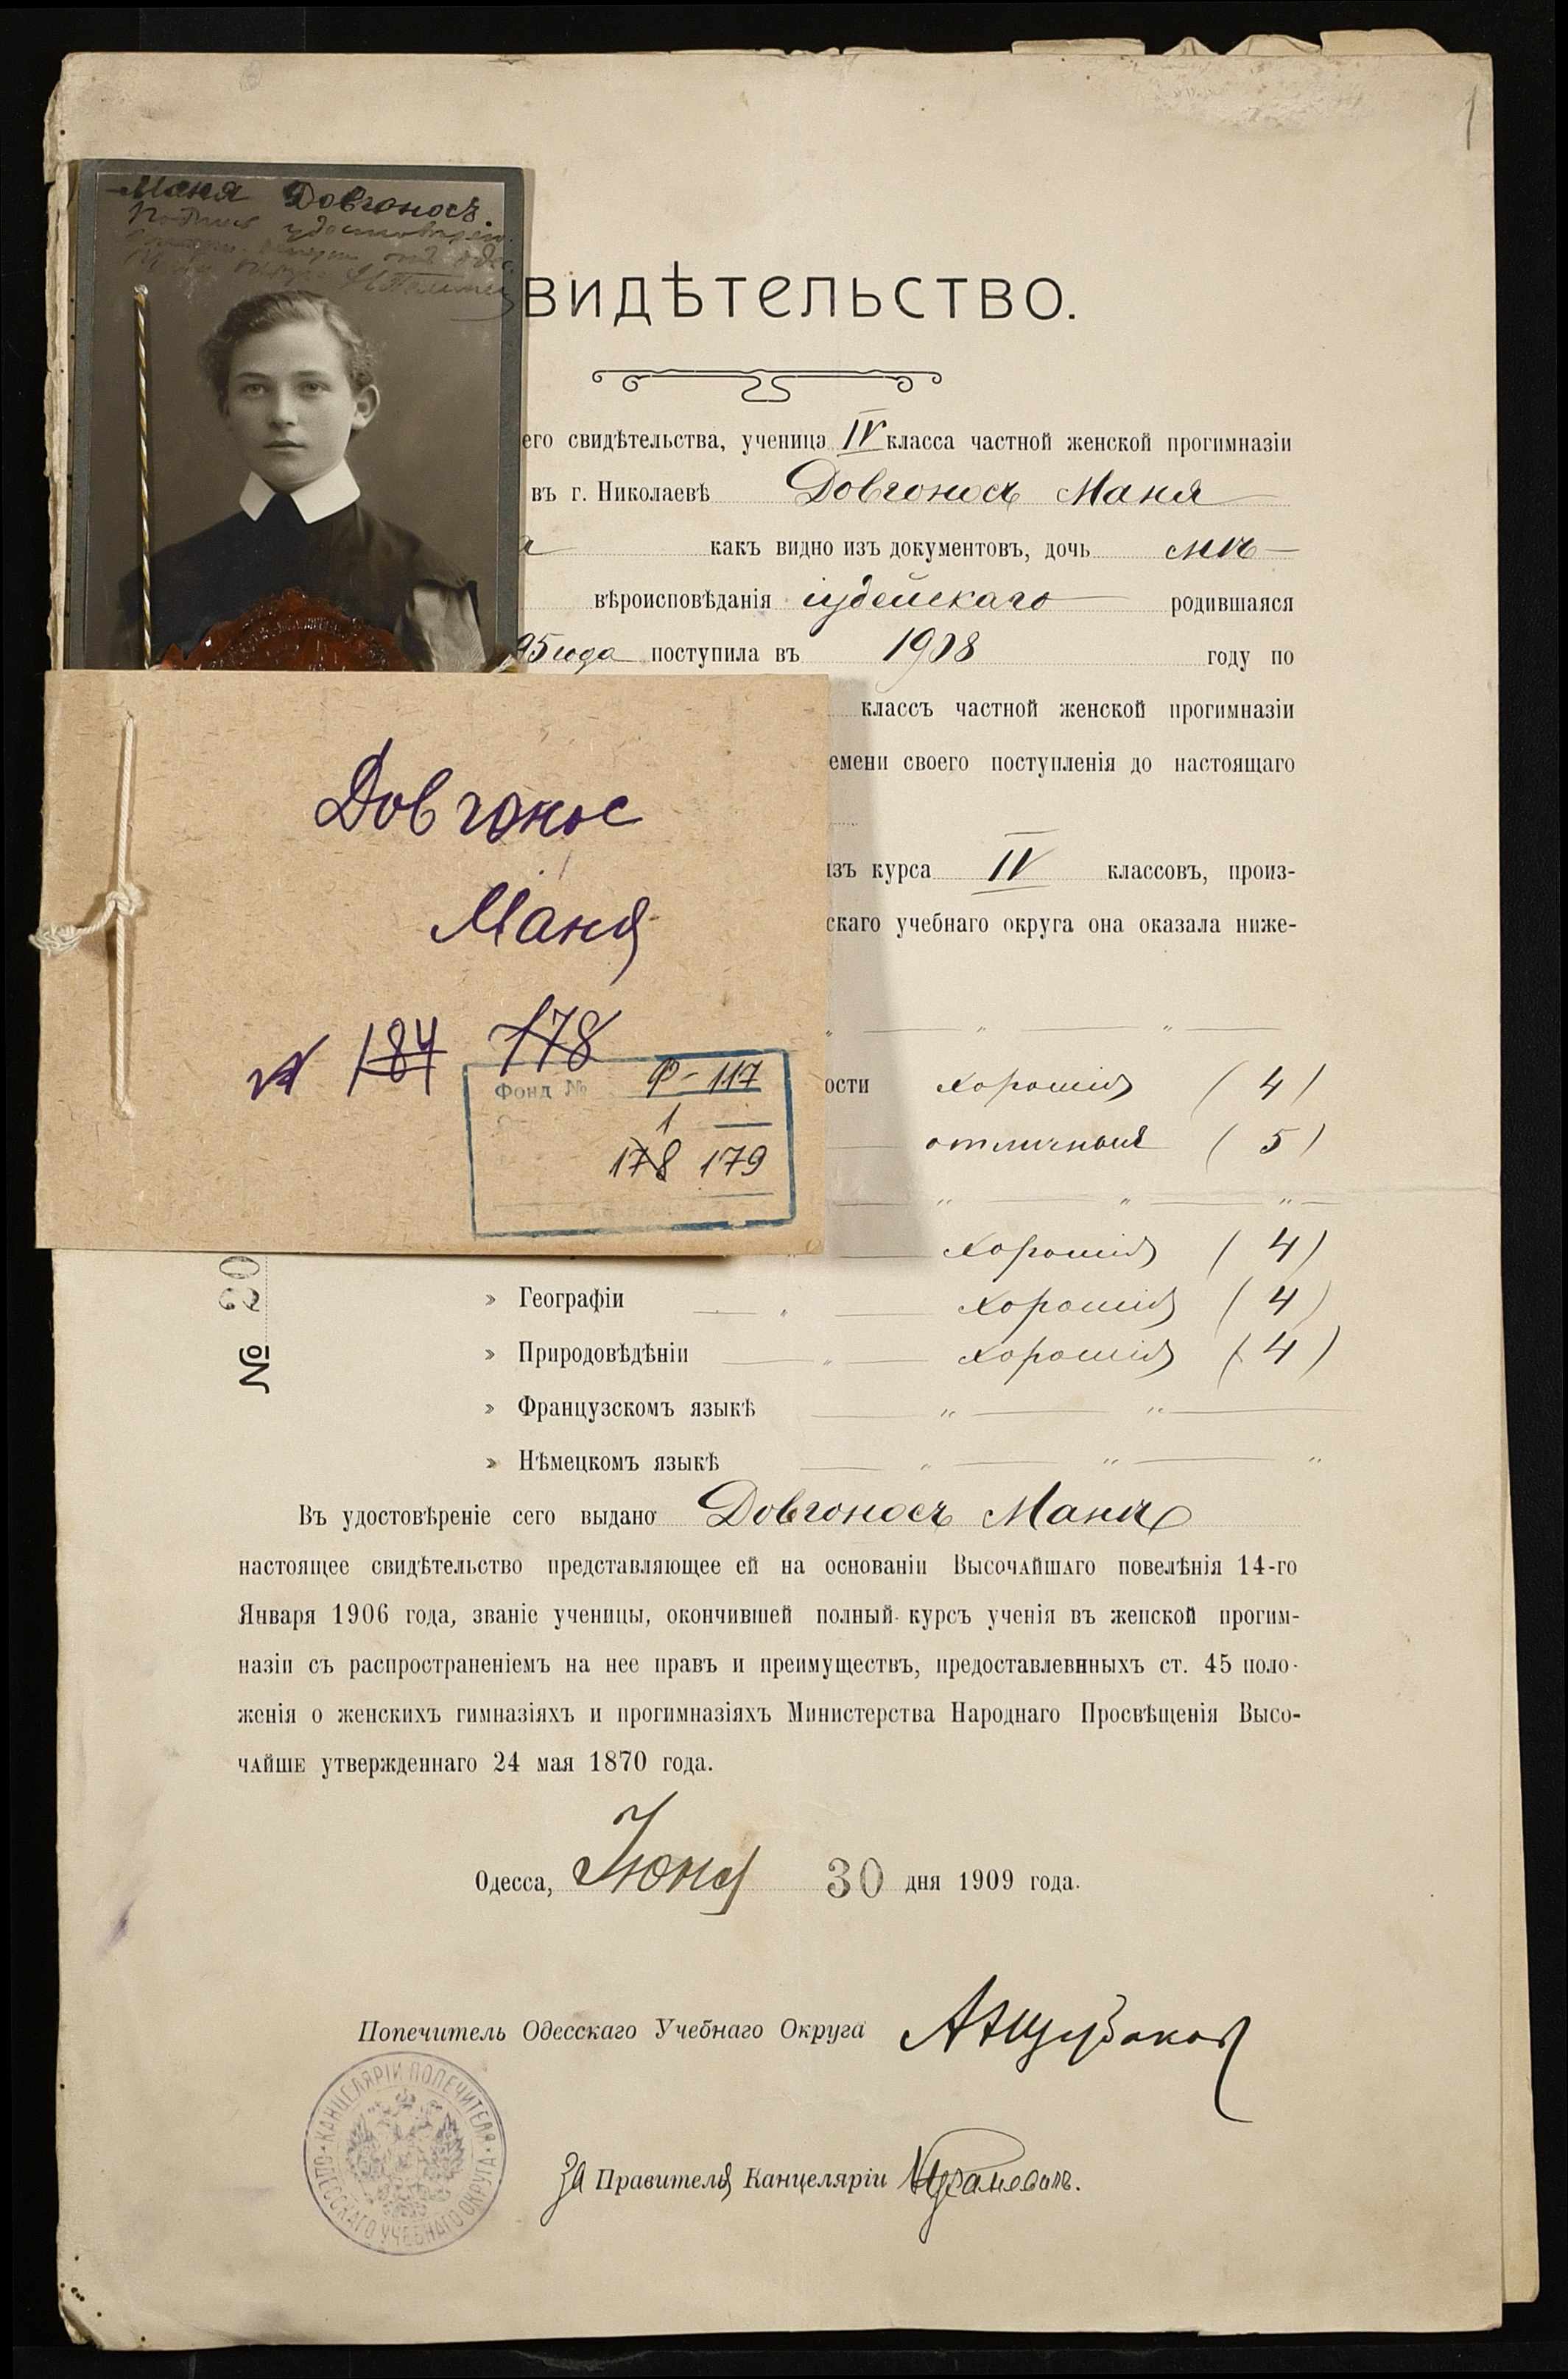 Маня Довгоносъ.
Подпись удостоверяю.
ВИДѢТЕЛЬСТВО.
его свидѣтельства, ученица IV класса частной женской прогимназіи
въ г. Николаевѣ Довгоносъ Маня
какъ видно изъ документовъ, дочь
вѣроисповѣданія іудейскаго родившаяся
95 года поступила въ 1908 году по
классъ частной женской прогимназіи
емени своего поступленія до настоящаго
изъ курса IV классовъ, произ-
скаго учебнаго округа она оказала ниже-
Довгонос
Маня
№ 184 178
Фонд № Ф-117
1
178 179
ости хорошія (4)
отличныя (5)
хорошія (4)
» Географіи хорошія (4)
» Природовѣдѣніи хорошія (4)
» Французскомъ языкѣ
» Нѣмецкомъ языкѣ
№
Въ удостовѣреніе сего выдано Довгоносъ Манѣ
настоящее свидѣтельство представляющее ей на основаніи ВысочАйшАго повелѣнія 14-го
Января 1906 года, званіе ученицы, окончившей полный курсъ ученія въ женской прогим-
назіи съ распространеніемъ на нее правъ и преимуществъ, предоставлевнныхъ ст. 45 поло-
женія о женскихъ гимназіяхъ и прогимназіяхъ Министерства Народнаго Просвѣщенія Высо-
чАЙШЕ утвержденнаго 24 мая 1870 года.
Одесса, Іюня 30 дня 1909 года.
Попечитель Одесскаго Учебнаго Округа
За Правителя Канцеляріи
КАНЦЕЛЯРІИ ПОПЕЧИТЕЛЯ ОДЕССКАГО УЧЕБНАГО ОКРУГА